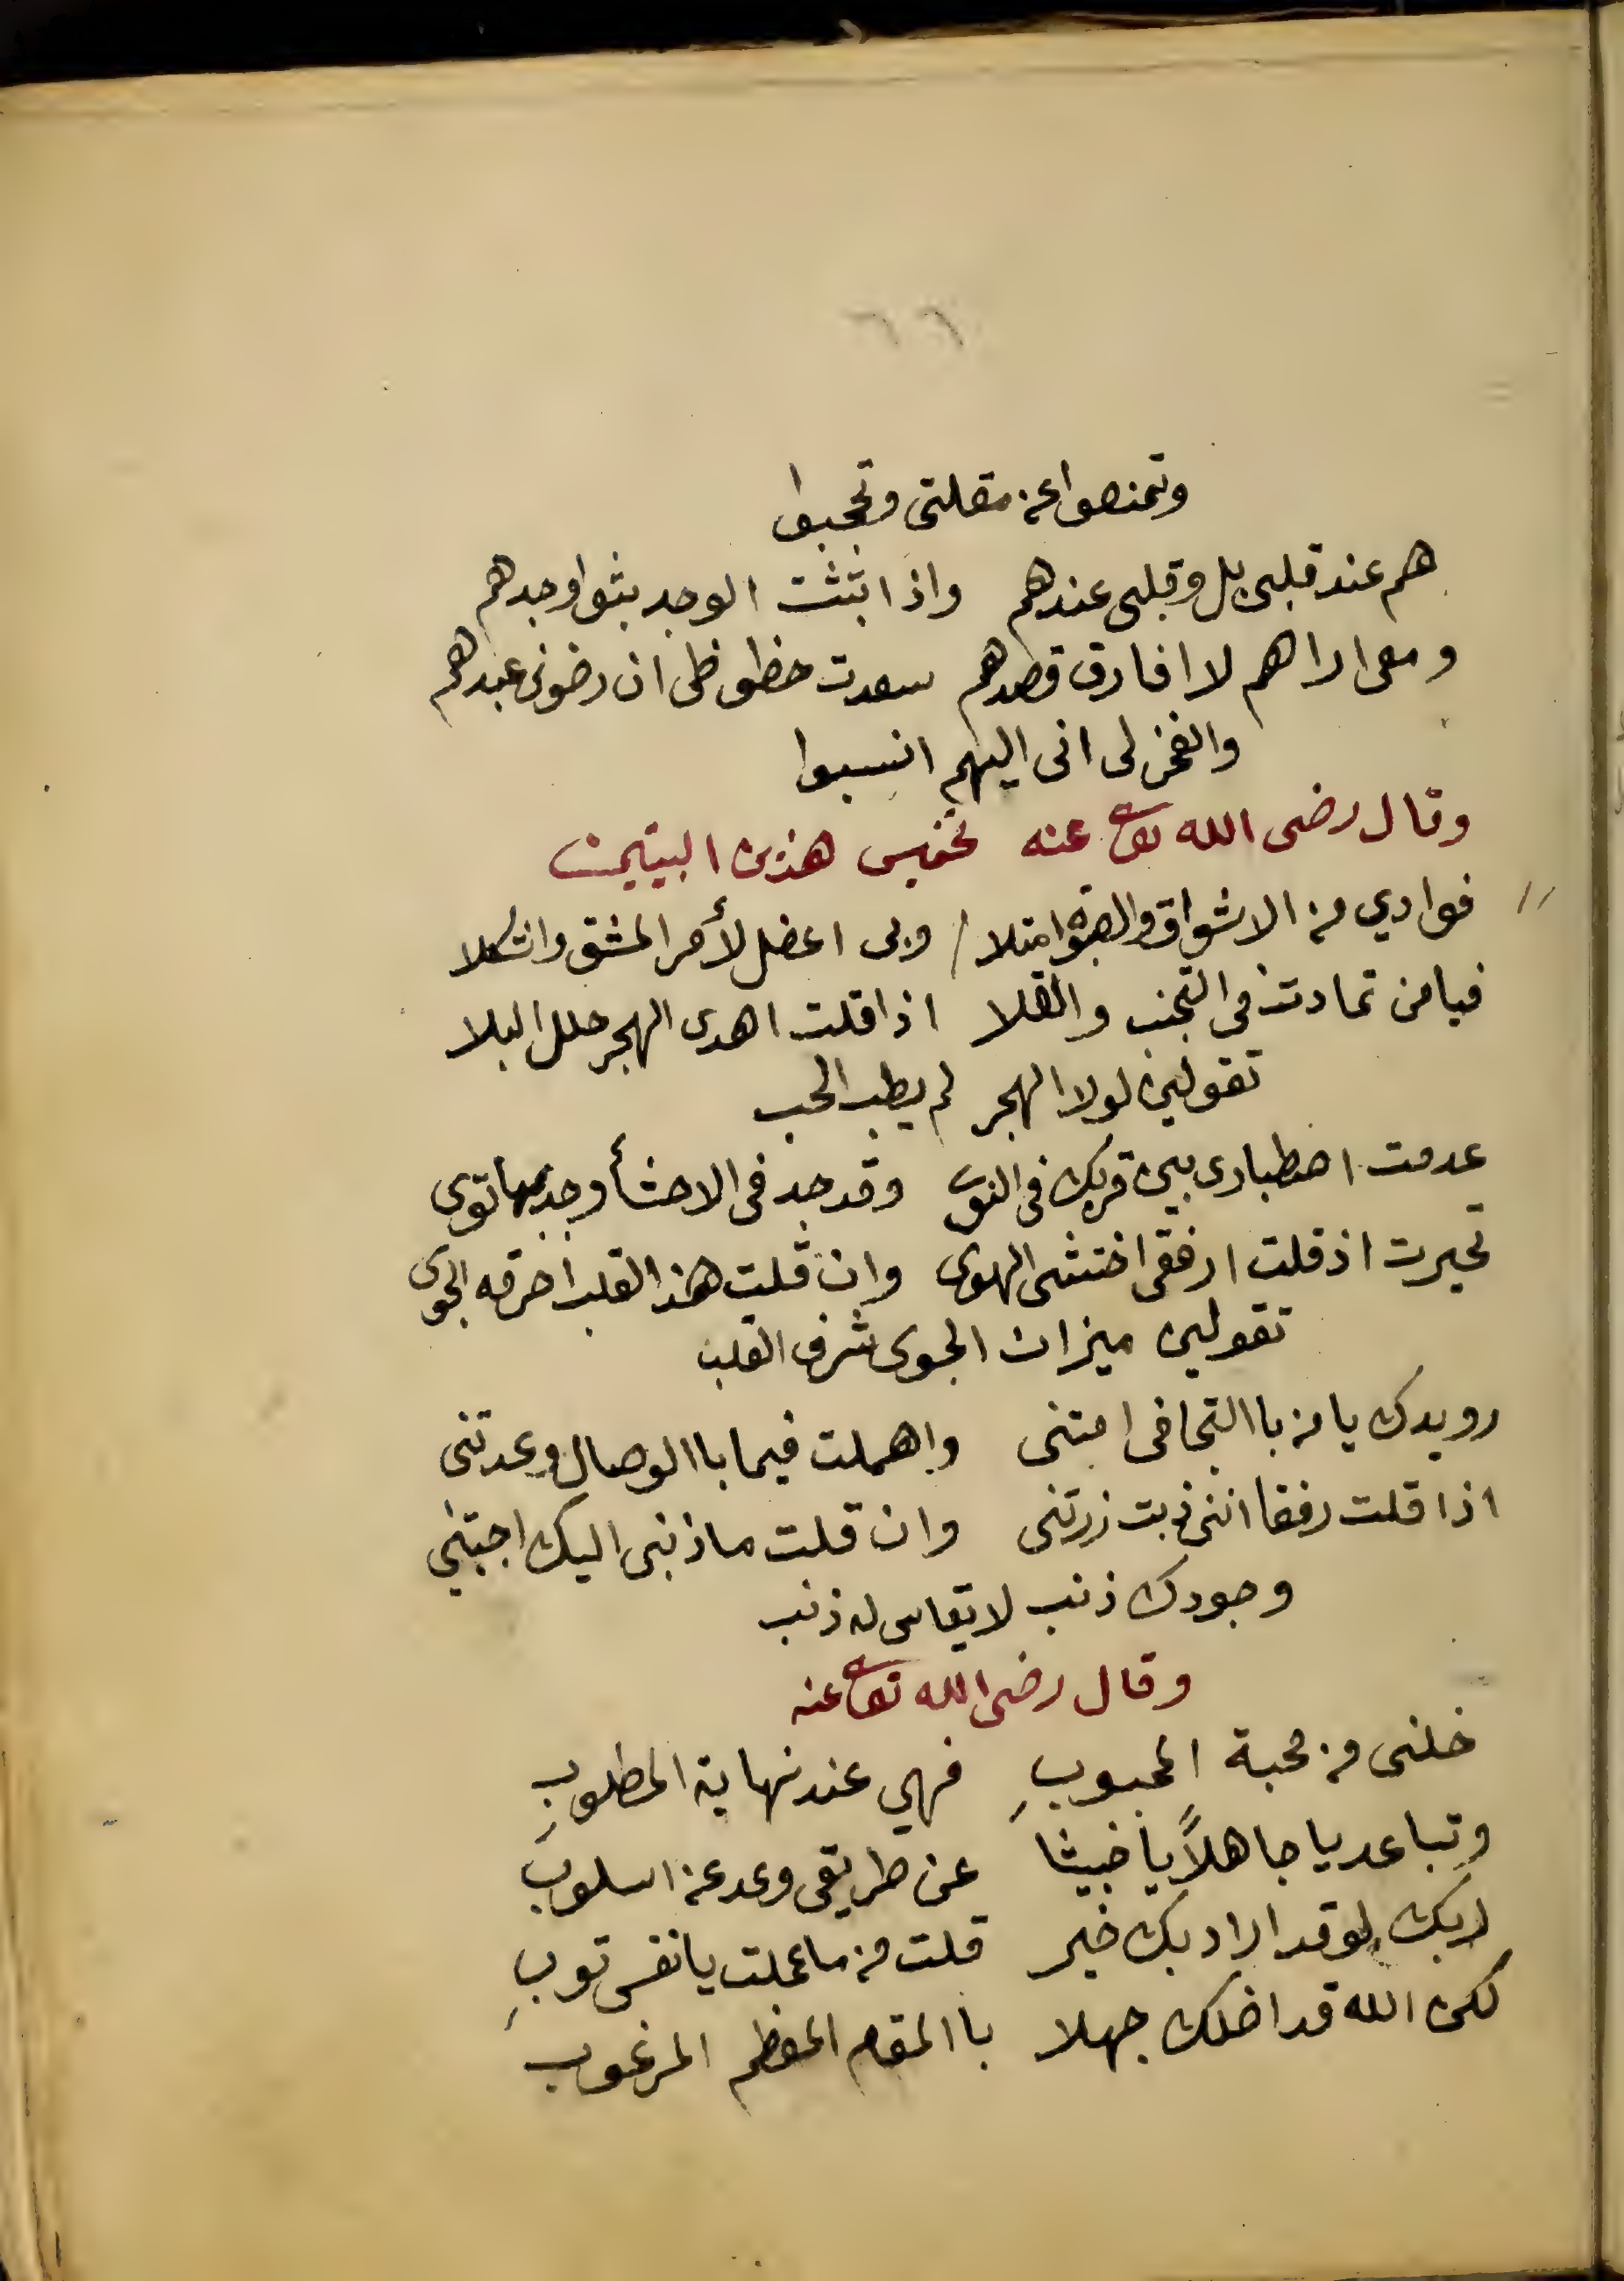 وتمنعوا عن مقلتي وتحجبوا
هم عند قلبي بل وقلبي عندهم واذا بثثت الوجد بثوا وجدهم
ومعي اراهم لا افارق قصدهم سعدت حظوظي ان رضوني عبدهم
والفخر لي اني اليهم انسبوا
وقال رضى الله تعالى عنه تخميس هذين البيتين
فوادي من الاشواق والصبوة امتلا وبي اعضل لأمر المشق واشكلا
فيا من تمادت في التجنب والقلا اذا قلت اهدى الهجر حلل البلا
تقولين لولا الهجر لم يطب الحب
عدمت اصطباري بين قربك في النوى وقد جد في الاحشأ وجد بها توى
تحيرت اذ قلت ارفقي اختشى الهوى وان قلت هذا القلب احرقه الجوى
تقولين ميزان الجوى شرف القلب
رويدك يا من باالتجافي امتني واهملت فيما باالوصال وعدتني
اذا قلت رفقا انني ذبت زرتني وان قلت ما ذنبي اليك اجبتني
وجودك ذنب لا يقاس له ذنب
وقال رضى الله تعالى عنه
خلني من محبة المحبوبِ فهي عند نهاية المطلوبِ
وتباعد يا جاهلاً يا خبيثا عن طريقي وعد عن اسلوبِ
ربك لو قد اراد بك خير قلت من ما عملت يا نفس توبِ
لكن الله قد اضلك جهلا باالمقام المعظم المرغوب